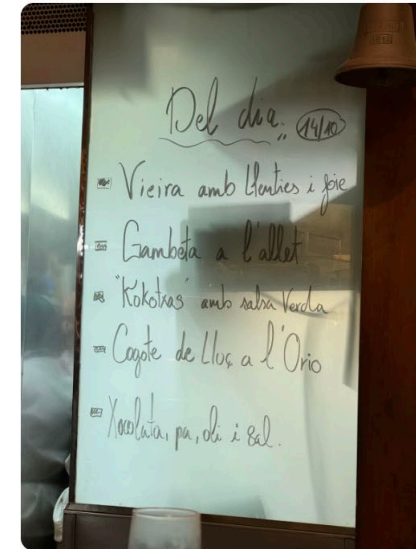 Del dia: 14/10
Vieira amb llenties i foie
Gambeta a l'allet
"Kokotxas" amb salsa Verda
Cogote de Lluç a l'Orio
Xocolata, pa, oli i sal.